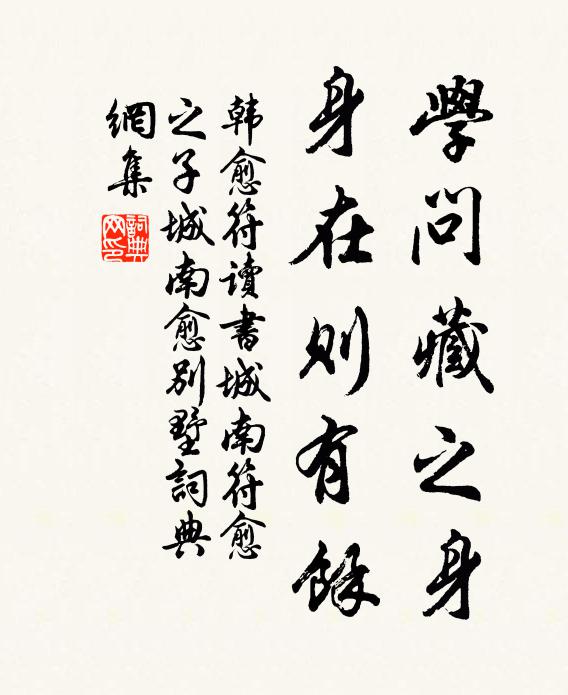 學問藏之身
身在则有餘
韩愈符讀書城南符愈
之子城南愈别墅詞典
網集
詞典网印